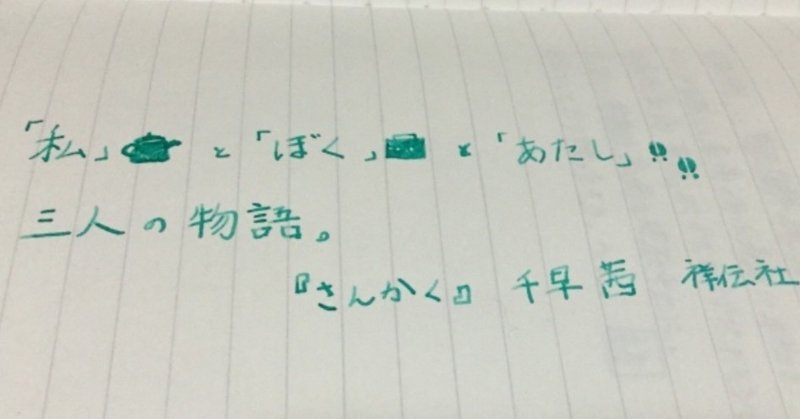 「私」と「ぼく」と「あたし」
三人の物語。
『さんかく』 千早茜 祥伝社